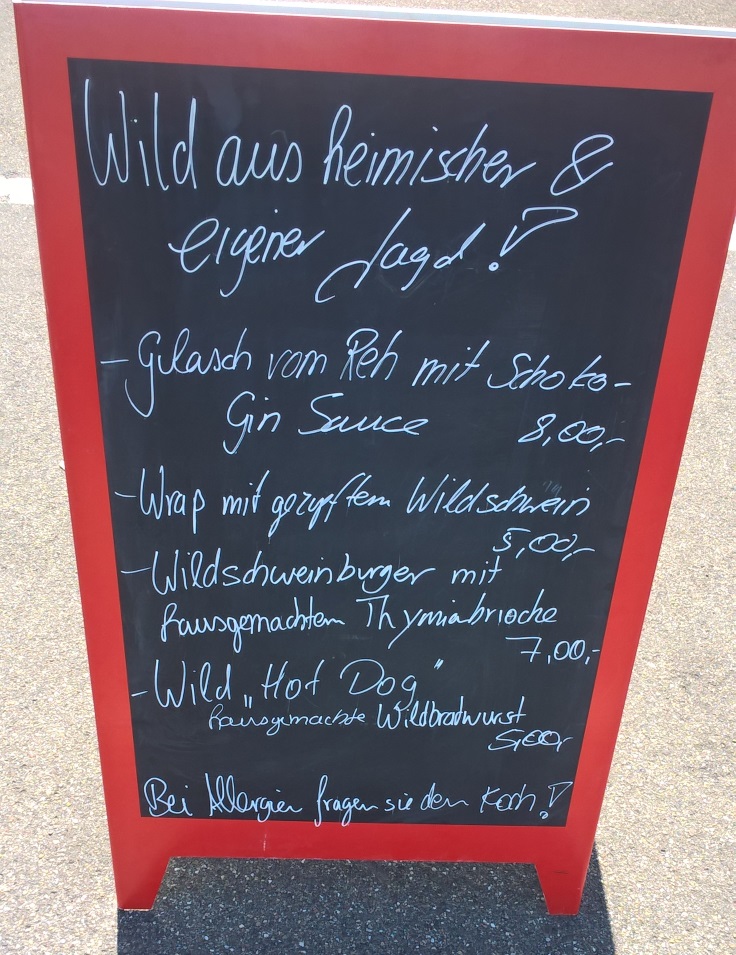 Wild aus heimischer &
eigener Jagd!
- Gulasch vom Reh mit Schoko-
Gin Sauce 8,00,-
- Wrap mit gezupftem Wildschwein
5,00,-
- Wildschweinburger mit
hausgemachtem Thymiabrioche
7,00,-
- Wild "Hot Dog"
hausgemachte Wildbradwurst
5,00,-
Bei Allergien fragen sie den Koch!